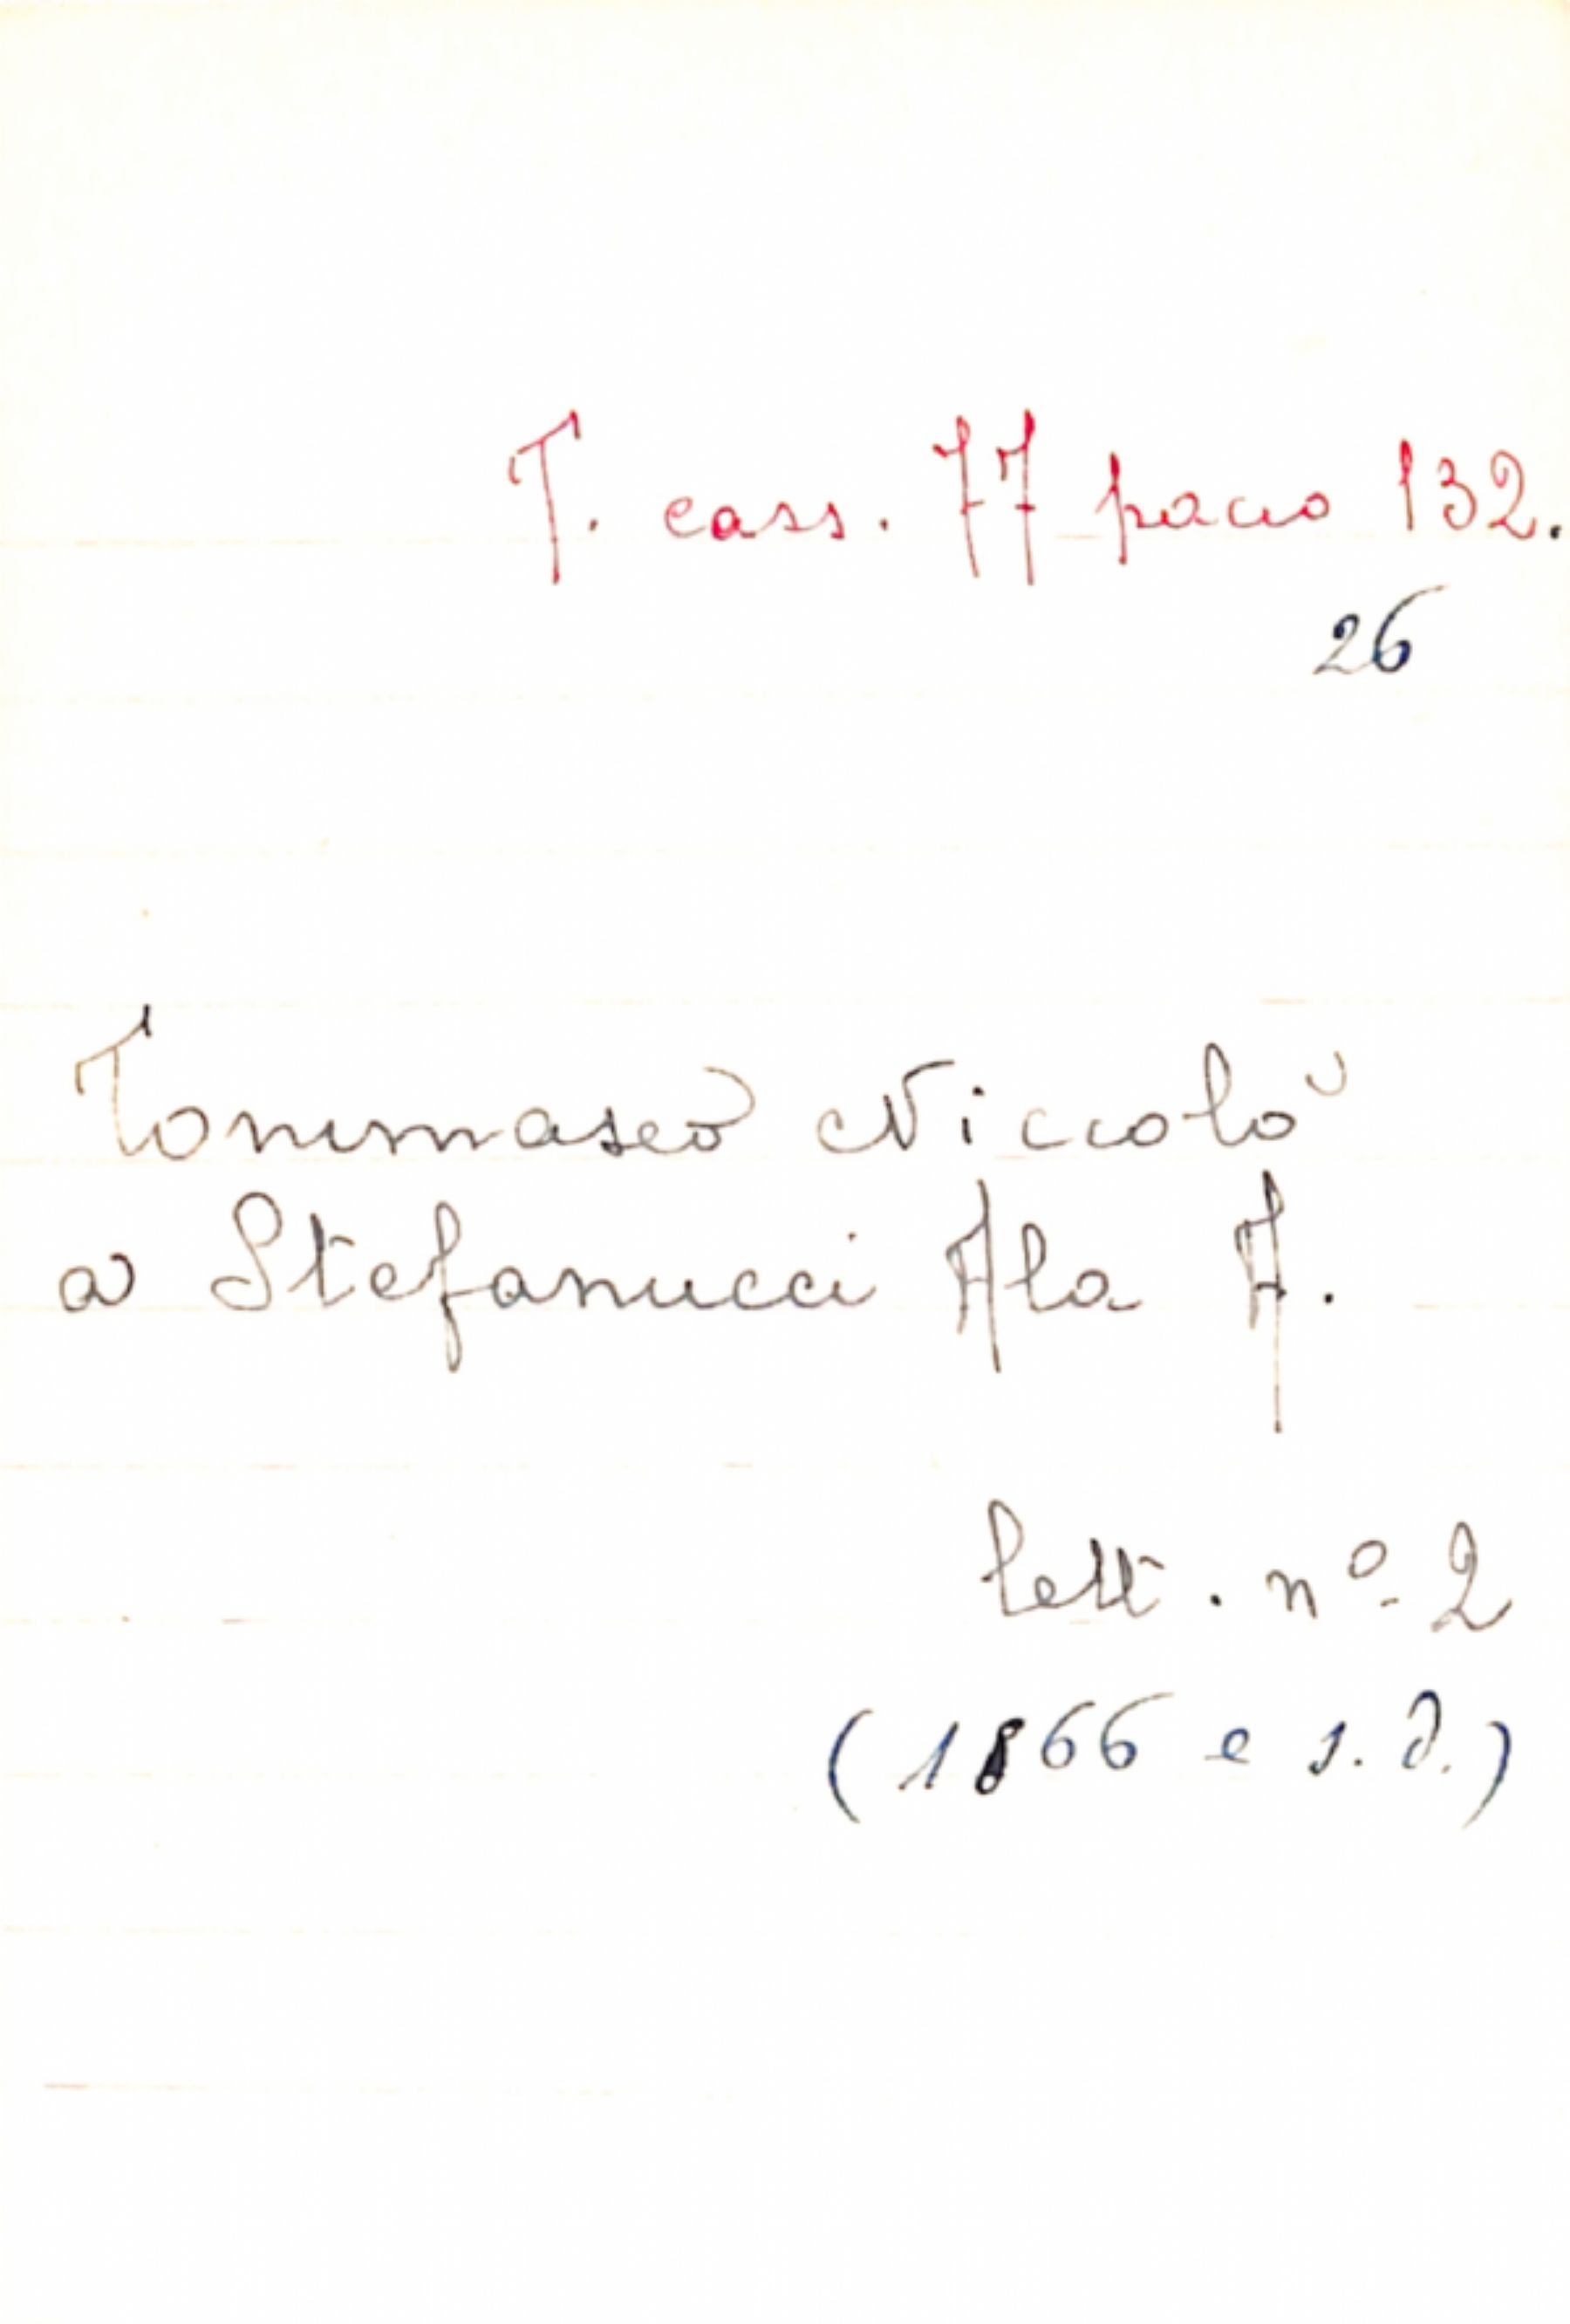 T. cass. 77 pacco 132.
26
Tommaseo Niccolò
a Stefanucci Ala A.
lett. nº 2
(1866 e s.d.)